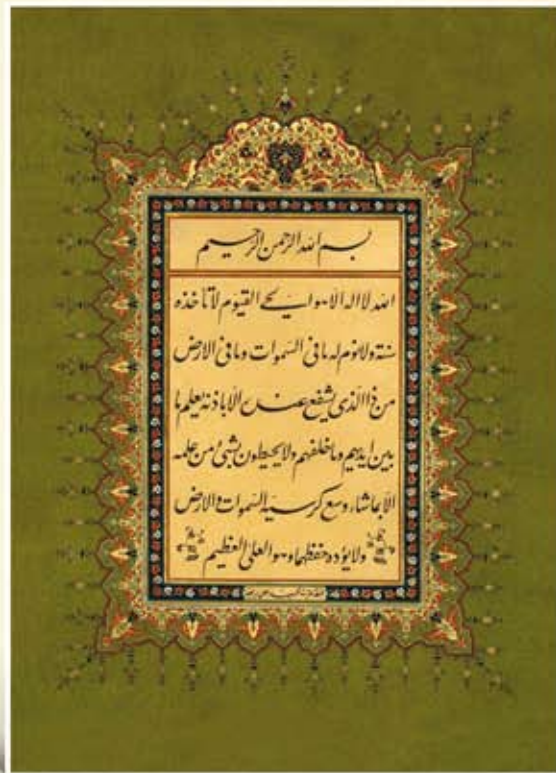 بسم الله الرحمن الرحيم
الله لا اله الا هو الحي القيوم لا تاخذه
سنة ولا نوم له ما في السموات وما في الارض
من ذا الذي يشفع عنده الا باذنه يعلم ما
بين ايديهم وما خلفهم ولا يحيطون بشيء من علمه
الا بما شاء وسع كرسيه السموات والارض
ولا يؤده حفظهما وهو العلي العظيم